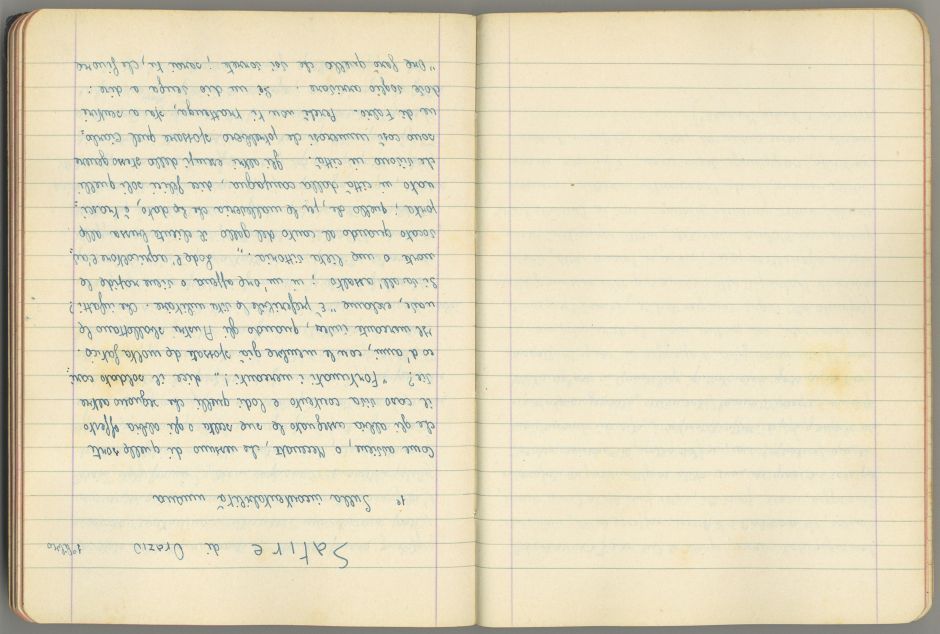 Satire di Orazio 1° libro
1ª Sulla incontentabilità umana
Come avviene, o Mecenate, che nessuno di quella sorte
che gli abbia assegnato la sua scelta o gli abbia offerto
il caso viva contento e lodi quelli che seguono altre
vie? "Fortunati i mercanti!" dice il soldato cari=
co d'anni, con le membra già spossate da molta fatica.
Il mercante invece, quando gli Austri sballottano la
nave, esclama "È preferibile la vita militare. Che infatti?
Si va all'assalto; in un'ora affaccia o viene rapida la
morte o una lieta vittoria." Loda l'agricoltore l'av=
vocato quando al canto del gallo il cliente bussa alla
porta; quello che, per la malleveria che ha dato, è trasci=
nato in città dalla campagna, dice felici soli quelli
che vivono in città. Gli altri esempi dello stesso genere
sono così numerosi da potrebbero spossare quel ciarlo=
ne di Fabio. Perché non ti trattenga, sta a sentire
dove voglio arrivare. Se un dio venga a dire:
"ora farò quello che voi vorrete; sarai tu, che finora